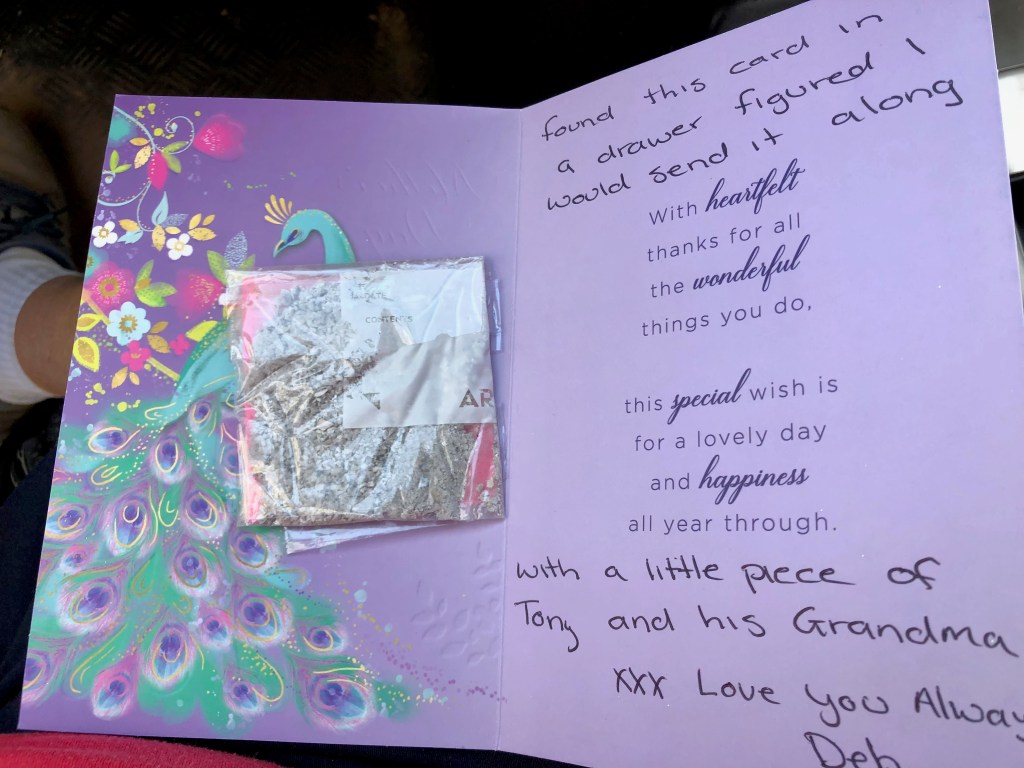 CONTENTS
AR
found this card in
a drawer figured I
would send it along
With heartfelt
thanks for all
the wonderful
things you do,
this special wish is
for a lovely day
and happiness
all year through.
with a little piece of
Tony and his Grandma
xxx Love you Alway
Deb